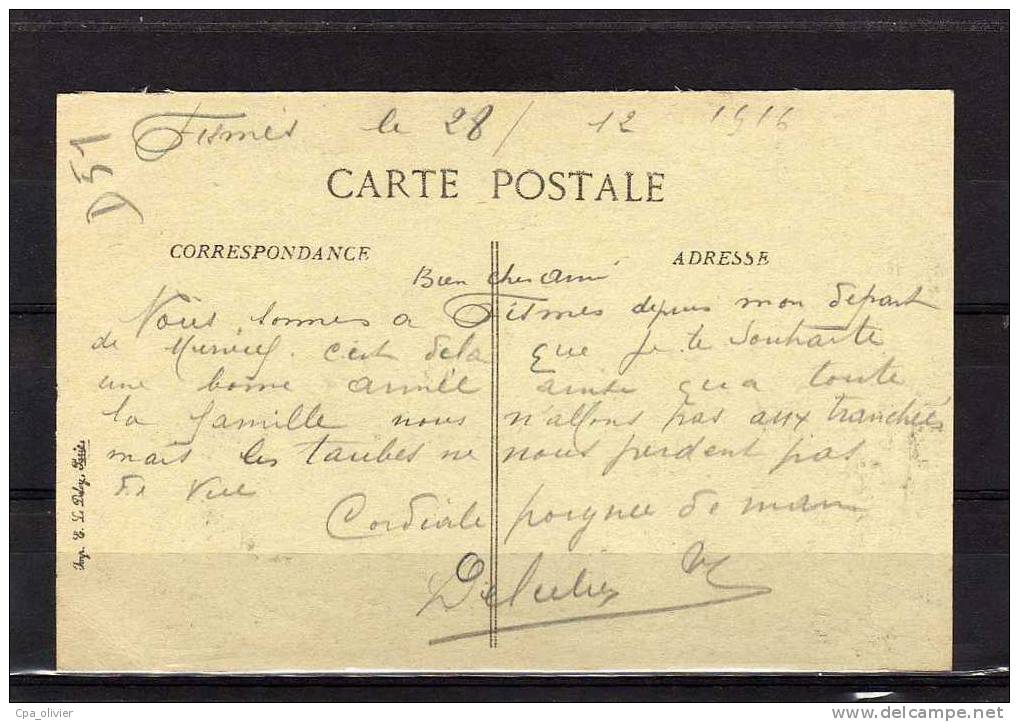 Fismes le 28/ 12 1916
D51
CARTE POSTALE
CORRESPONDANCE
ADRESSE
Bien cher Ami
Nous sommes a Fismes depuis mon depart
de c'est dela que je te souhaite
une bonne année ainsi qu'a toute
ta famille nous n'allons pas aux tranchées
mais les taubes ne nous perdent pas
de vue
Cordiale poignee de main
Imp. E. Le Deley, Paris
Cpa_olivier
delcampe.net